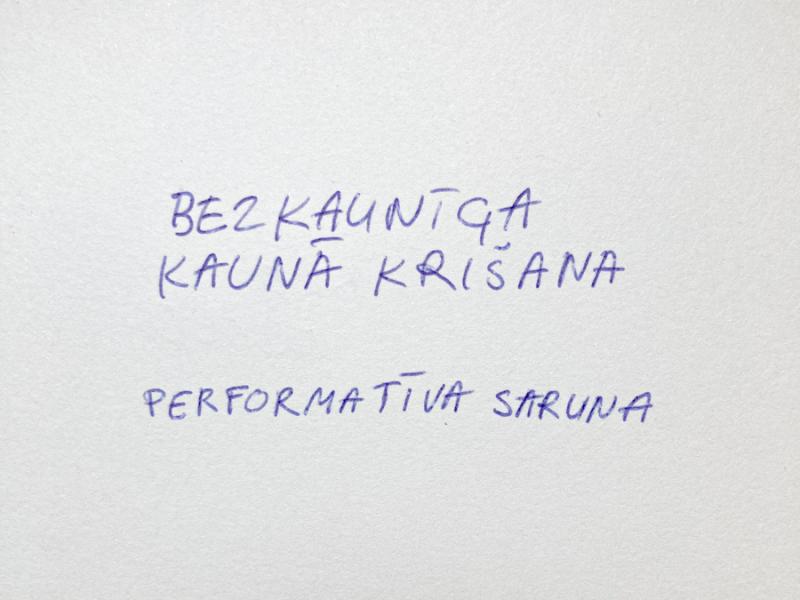 BEZKAUNĪGA
KAUNĀ KRIŠANA
PERFORMATĪVA SARUNA